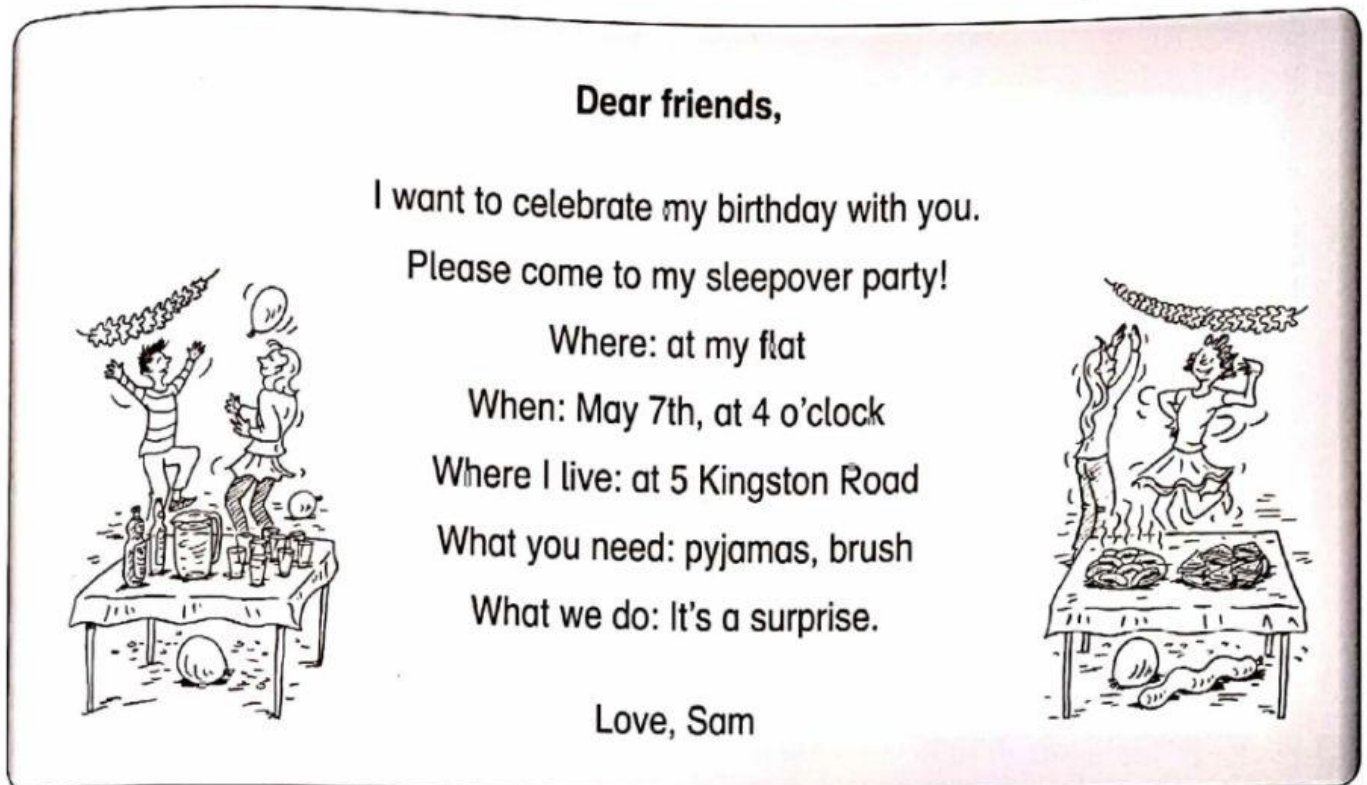 Dear friends,
I want to celebrate my birthday with you.
Please come to my sleepover party!
Where: at my flat
When: May 7th, at 4 o'clock
Where I live: at 5 Kingston Road
What you need: pyjamas, brush
What we do: It's a surprise.
Love, Sam